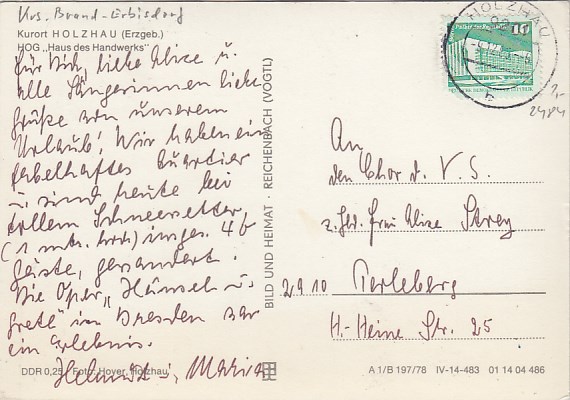 Krs. Brand-Erbisdorf
Kurort HOLZHAU (Erzgeb.)
HOG „Haus des Handwerks"
Für Dich, liebe Alice u.
alle Sängerinnen liebe
Grüße von unserem
Urlaub! Wir haben ein
fabelhaftes Quartier
u. sind heute bei
tollem Schneewetter
(1 mtr. hoch) insges. 46
Gäste, gewandert.
Die Oper „Hänsel u.
Gretl" in Dresden war
ein Erlebnis.
Helmut u. Maria
DDR 0,25 Foto: Hoyer, Holzhau
BILD UND HEIMAT · REICHENBACH (VOGTL)
HOLZHAU
10
2484
An
den Chor d. V. S.
z. Hd. Frau Alice
2910 Perleberg
H.-Heine Str. 25
A 1/B 197/78 IV-14-483 01 14 04 486